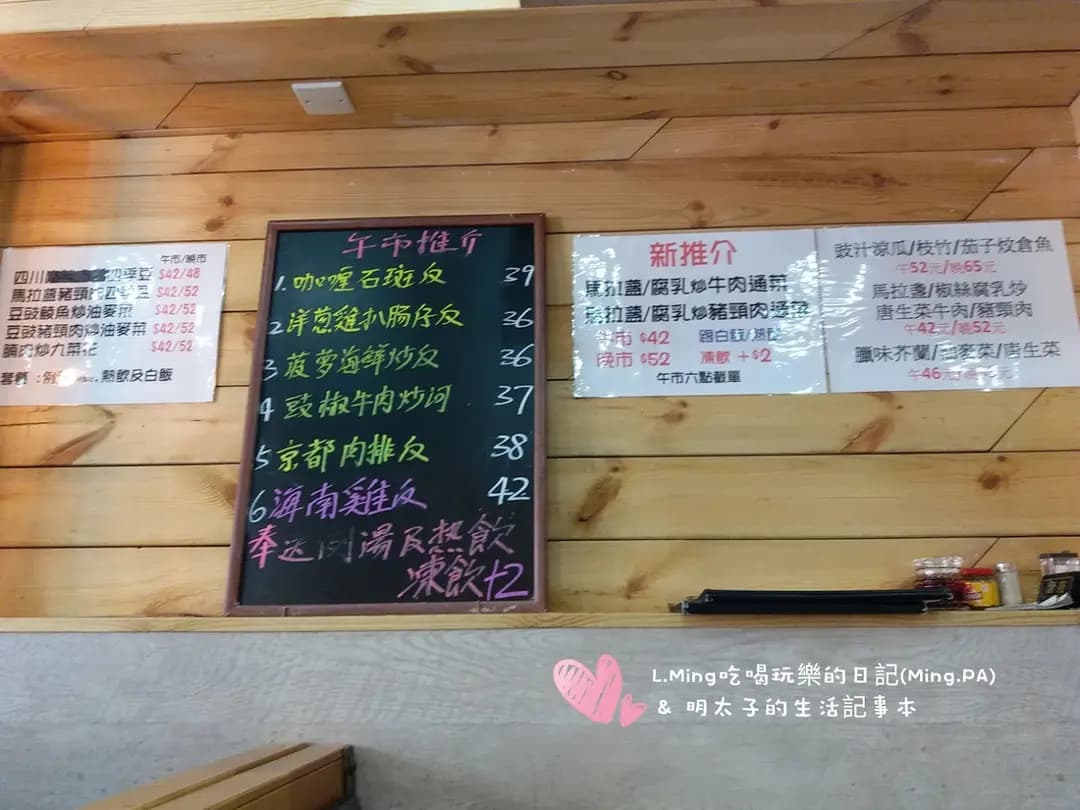 午市/晚市
四川 四季豆 $42/48
馬拉盞豬頸肉四季豆 $42/52
豆豉鯪魚炒油麥菜 $42/52
豆豉豬頸肉炒油麥菜 $42/52
腩肉炒九菜花 $42/52
熱飲及白飯
午市推介
1. 咖喱石斑反 39
2 洋葱雞扒腸仔反 36
3 菠萝海鲜炒反 36
4 豉椒牛肉炒河 37
5 京都肉排反 38
6 海南雞反 42
奉送例湯及熱飲
凍飲+2
新推介
馬拉盞/腐乳炒牛肉通菜
馬拉盞/腐乳炒豬頸肉通菜
午市 $42 跟白飯/熱飲
晚市 $52 凍飲 +$2
午市六點截單
豉汁涼瓜/枝竹/茄子炆倉魚
午52元/晚65元
馬拉盞/椒絲腐乳炒
唐生菜牛肉/豬頸肉
午42元/晚52元
臘味芥蘭/油麥菜/唐生菜
午46元
L.Ming吃喝玩樂的日記(Ming.PA)
& 明太子的生活記事本